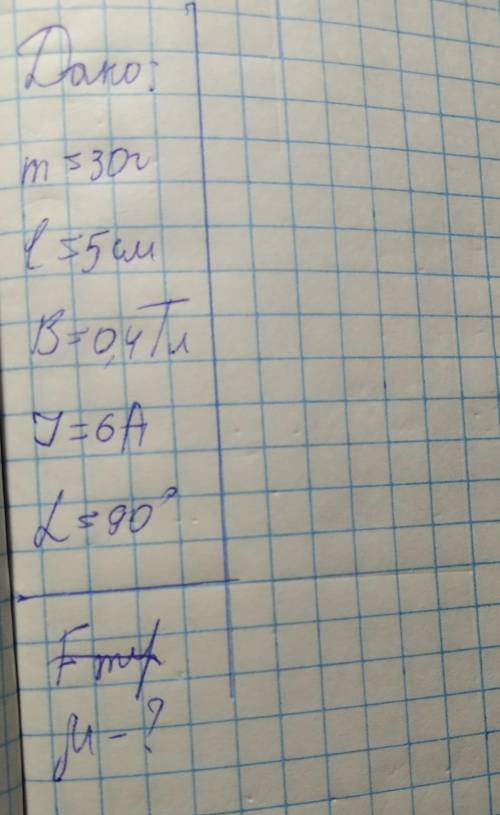 Дано:
m = 30г
l = 5 см
B = 0,4 Тл
I = 6 А
α = 90°
Fтр
μ - ?